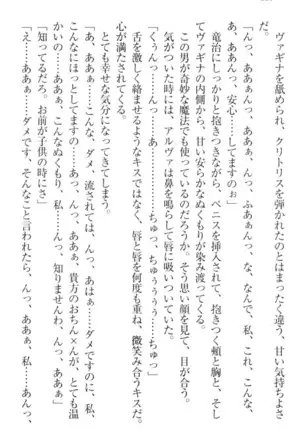 だ。
ヴァギナを舐められ、クリトリスを弾かれたのとはまったく違う、甘い気持ちよさ
「んっ、あぁぁんっ、ふあぁんっ、な、なんで、私、これ、こんな、
ああんっ、安心……してますのぉ」
竜治にしっかりと抱きつきながら、ペニスを挿入されて、抱きつく頬と胸と、そし
てヴァギナの内側から、甘い安らかなぬくもりが染み渡ってくる。
この男が奇妙な魔法でも使っているのだろうか。そう思い顔を見て、目が合う。
気がついた時には、アルヴァは鼻を鳴らして唇に吸いついていた。
「くぅんっ……んっ、あ……ちゅっ、ちゅぅぅぅぅ……ちゅっ」
舌を激しく絡ませるようなキスではなく、唇と唇を何度も重ね、微笑み合うキスだ。
心が満たされてくる。
とても幸せな気分になってきてしまう。
「あ、ああぁ……こんな、ダメ、流されては、んっ、あはぁ……ダメですのに、私、
こんなにほっとしてますの……あっ、んっ、ああぁ、貴方のおちん×んが、とても温
かいの……ああぁ、こんなぬくもり、私……んっ、知りませんわ、んっ、ああぁ」
「知ってるだろ。お前が子供の時にさ」
「え……ああぁ、ダメです、そんなこと言われたら、んっ、ああぁ、私……あんっ、